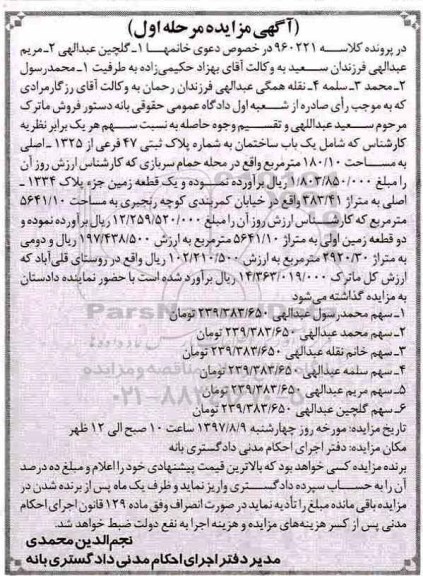 (آگهی مزایده مرحله اول)
در پرونده کلاسه ۹۶۰۲۲۱ در خصوص دعوی خانمها ۱ـ گلچین عبدالهی ۲ـ مریم
عبدالهی فرزندان سعید به وکالت آقای بهزاد حکیمی‌زاده به طرفیت ۱ـ محمدرسول
۲ـ محمد ۳ـ سلمه ۴ـ نقله همگی عبدالهی فرزندان رحمان به وکالت آقای رزگارمرادی
که به موجب رأی صادره از شعبه اول دادگاه عمومی حقوقی بانه دستور فروش ماترک
مرحوم سعید عبداللهی و تقسیم وجوه حاصله به نسبت سهم هر یک برابر نظریه
کارشناس که شامل یک باب ساختمان به شماره پلاک ثبتی ۴۷ فرعی از ۱۳۲۵ ـ اصلی
به مساحت ۱۸۰/۱۰ مترمربع واقع در محله حمام سربازی که کارشناس ارزش روز آن
را مبلغ ۱/۸۰۲/۸۵۰/۰۰۰ ریال برآورده نموده و یک قطعه زمین جزء پلاک ۱۳۳۴ ـ
اصلی به متراژ ۳۸۳/۴۱ واقع در خیابان کمربندی کوچه رنجبری به مساحت ۵۶۴۱/۱۰
مترمربع که کارشناس ارزش روز آن را مبلغ ۱۲/۲۵۹/۵۲۰/۰۰۰ ریال برآورده نموده و
دو قطعه زمین اولی به متراژ ۵۶۴۱/۱۰ مترمربع به ارزش ۱۹۷/۴۳۸/۵۰۰ ریال و دومی
به متراژ ۲۹۲۰/۳۰ مترمربع به ارزش ۱۰۲/۲۱۰/۵۰۰ ریال واقع در روستای قلی‌آباد که
ارزش کل ماترک ۱۴/۳۶۳/۰۱۹/۰۰۰ ریال برآورد شده است با حضور نماینده دادستان
به مزایده گذاشته می‌شود
۱ـ سهم محمدرسول عبدالهی ۲۳۹/۳۸۳/۶۵۰ تومان
۲ـ سهم محمد عبدالهی ۲۳۹/۳۸۳/۶۵۰ تومان
۳ـ سهم خانم نقله عبدالهی ۲۳۹/۳۸۳/۶۵۰ تومان
۴ـ سهم سلمه عبدالهی ۲۳۹/۳۸۳/۶۵۰ تومان
۵ـ سهم مریم عبدالهی ۲۳۹/۳۸۳/۶۵۰ تومان
۶ـ سهم گلچین عبدالهی ۲۳۹/۳۸۳/۶۵۰ تومان
تاریخ مزایده: مورخه روز چهارشنبه ۱۳۹۷/۸/۹ ساعت ۱۰ صبح الی ۱۲ ظهر
مکان مزایده: دفتر اجرای احکام مدنی دادگستری بانه
برنده مزایده کسی خواهد بود که بالاترین قیمت پیشنهادی خود را اعلام و مبلغ ده درصد
آن را به حساب سپرده دادگستری واریز نماید و ظرف یک ماه پس از برنده شدن در
مزایده باقی مانده مبلغ را تأدیه نماید در صورت انصراف وفق ماده ۱۲۹ قانون اجرای احکام
مدنی پس از کسر هزینه‌های مزایده و هزینه اجرا به نفع دولت ضبط خواهد شد.
نجم‌الدین محمدی
مدیر دفتر اجرای احکام مدنی دادگستری بانه